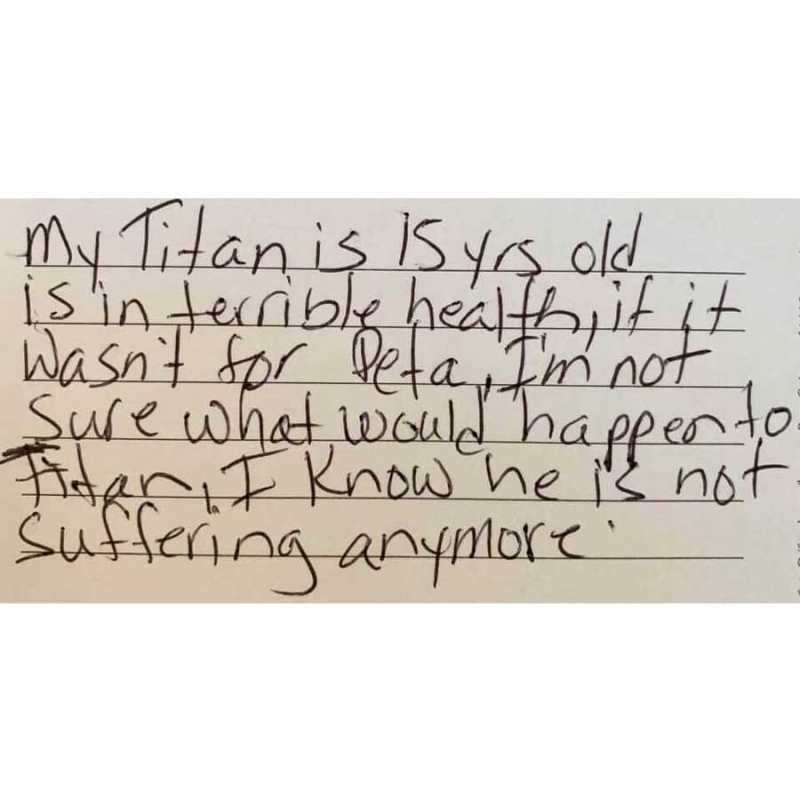 My Titan is 15 yrs old
is in terrible health, if it
Wasn't for Peta, I'm not
Sure what would happen to
Titan, I know he is not
suffering anymore.